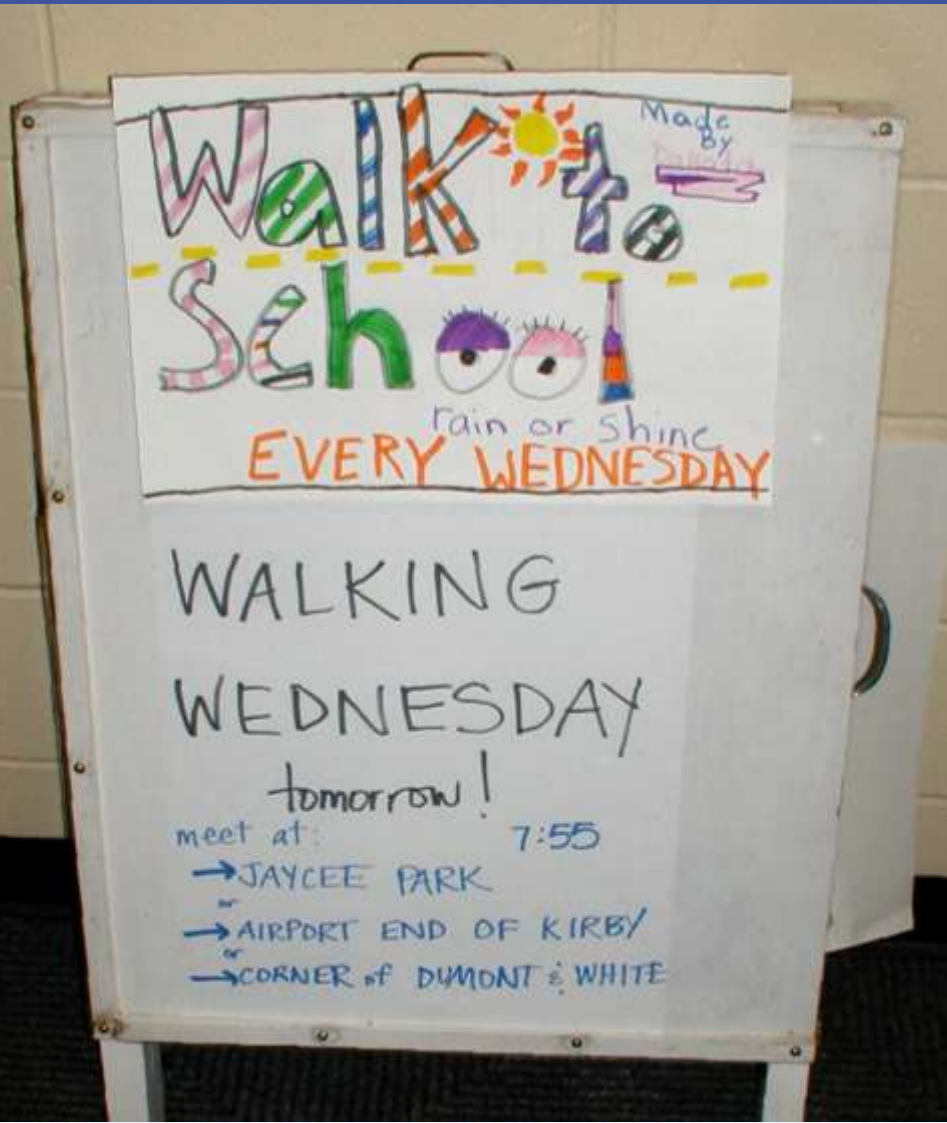 Walk to
Made
By
School
rain or shine
EVERY WEDNESDAY
WALKING
WEDNESDAY
tomorrow!
meet at: 7:55
→JAYCEE PARK
or
→AIRPORT END OF KIRBY
or
→CORNER of DUMONT & WHITE